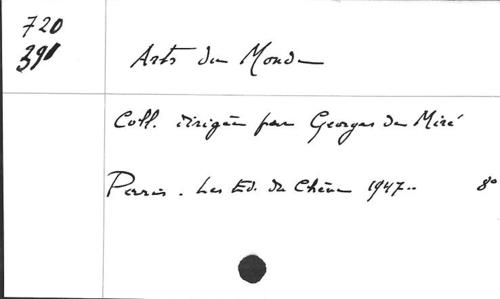 720
391
Arts du Monde
Coll. dirigée par Georges de Miré
Paris. Les Ed. du Chêne 1947.. 8°